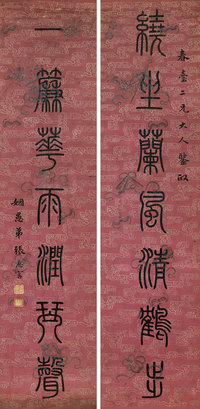 春臺二兄大人鑒政
繞坐蘭風清鶴步
一簾華雨潤琴聲
姻愚弟張